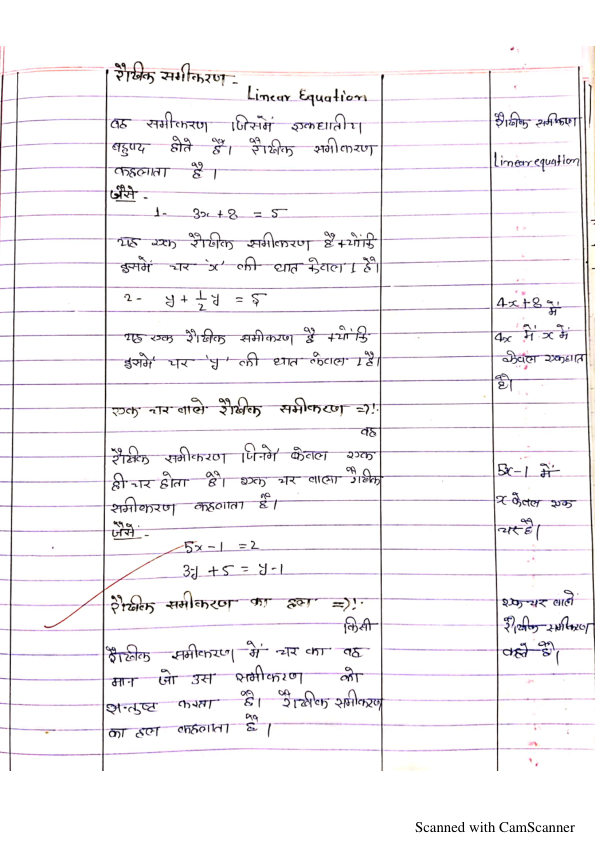 रैखिक समीकरण -
Linear Equation
वह समीकरण जिसमें एकघातीय
बहुपद होते हैं। रैखिक समीकरण
कहलाता है।
जैसे -
1- 3x + 8 = 5
यह एक रैखिक समीकरण है क्योंकि
इसमें चर 'x' की घात केवल 1 है।
2- y + 1/2 y = 5
यह एक रैखिक समीकरण है क्योंकि
इसमें चर 'y' की घात केवल 1 है।
एक चर वाले रैखिक समीकरण =>!.
वह
रैखिक समीकरण जिनमें केवल एक
ही चर होता है। एक चर वाला रैखिक
समीकरण कहलाता है।
जैसे -
5x - 1 = 2
3y + 5 = y - 1
रैखिक समीकरण का हल =>!.
किसी
रैखिक समीकरण में चर का वह
मान जो उस समीकरण को
सन्तुष्ट करता है। रैखिक समीकरण
का हल कहलाता है।
रैखिक समीकरण
Linear equation
4x + 8 में
4x में x में
केवल एकघात
है।
5x - 1 में
x केवल एक
चर है।
एक चर वाले
रैखिक समीकरण
कहते है।
Scanned with CamScanner